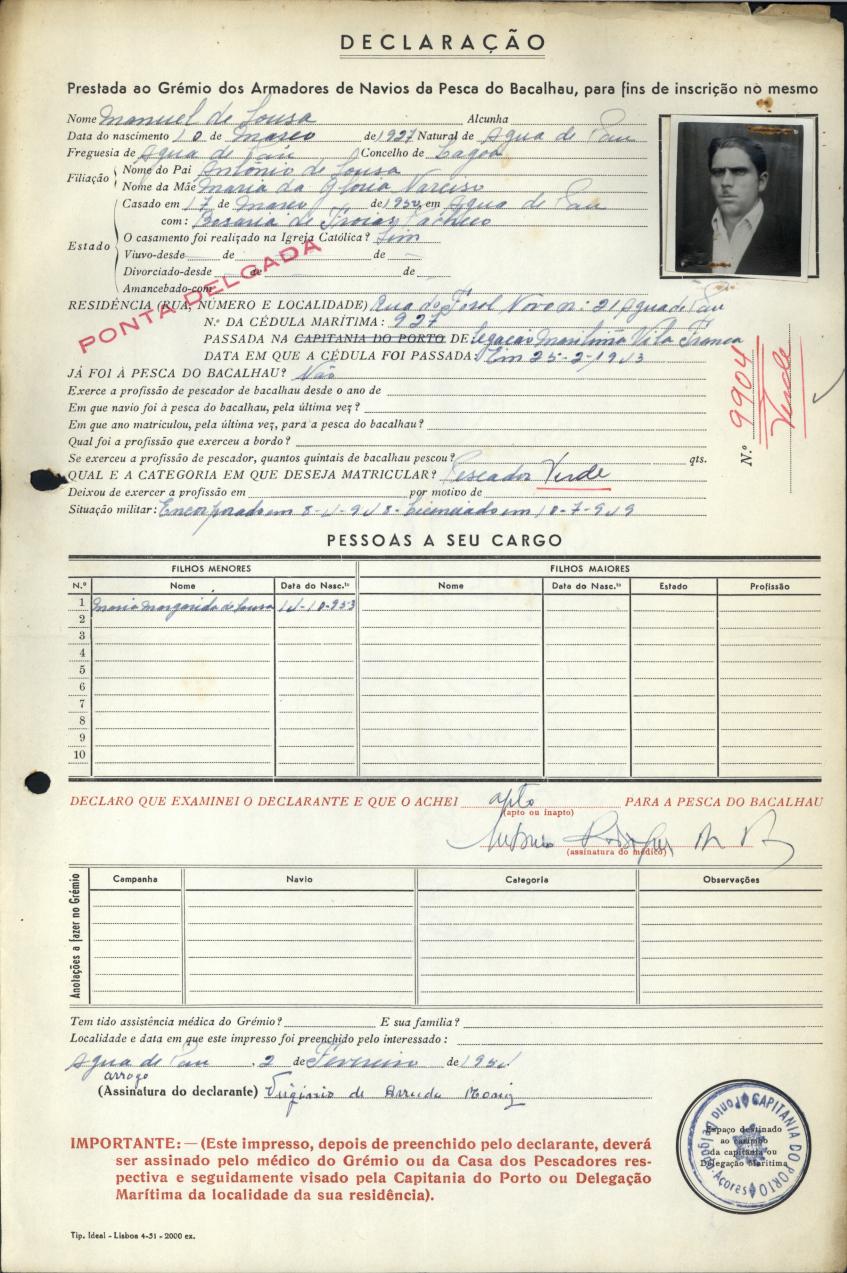 DECLARAÇÃO
Prestada ao Grémio dos Armadores de Navios da Pesca do Bacalhau, para fins de inscrição no mesmo
Nome Manuel de Sousa Alcunha
Data do nascimento 10 de Março de 1927 Natural de Agua de Pau
Freguesia de Agua de Pau Concelho de Lagoa
Filiação
Nome do Pai António de Sousa
Nome da Mãe Maria da Gloria Narciso
Estado
Casado em 17 de Março de 1952 em Agua de Pau
com: de Pacheco
O casamento foi realizado na Igreja Católica? Sim
Viuvo-desde de de
Divorciado-desde de de
Amancebado-com
PONTA DELGADA
RESIDÊNCIA (RUA, NÚMERO E LOCALIDADE) Rua do n: 21 Agua de Pau
N.º DA CÉDULA MARÍTIMA: 927
PASSADA NA CAPITANIA DO PORTO DE Legação Maritima Vila Franca
DATA EM QUE A CÉDULA FOI PASSADA: Em 25-2-1943
JÁ FOI À PESCA DO BACALHAU? Não
Exerce a profissão de pescador de bacalhau desde o ano de
Em que navio foi à pesca do bacalhau, pela última vez?
Em que ano matriculou, pela última vez, para a pesca do bacalhau?
Qual foi a profissão que exerceu a bordo?
Se exerceu a profissão de pescador, quantos quintais de bacalhau pescou? qts.
QUAL E A CATEGORIA EM QUE DESEJA MATRICULAR? Pescador Verde
Deixou de exercer a profissão em por motivo de
Situação militar: Encorporado em 8-4-948- Licenciado em 10-7-949
N.º 9904
Verde
PESSOAS A SEU CARGO
FILHOS MENORES FILHOS MAIORES
N.º Nome Data do Nasc.to Nome Data do Nasc.to Estado Profissão
1 Maria Margarida de Sousa 14-10-953
2
3
4
5
6
7
8
9
10
DECLARO QUE EXAMINEI O DECLARANTE E QUE O ACHEI apto PARA A PESCA DO BACALHAU
(apto ou inapto)
(assinatura do médico)
Anotações a fazer no Grémio
Campanha Navio Categoria Observações
Tem tido assistência médica do Grémio? E sua família?
Localidade e data em que este impresso foi preenchido pelo interessado:
Agua de Pau, 2 de Fevereiro de 1954
arrogo
(Assinatura do declarante) Virginio de Arruda Moniz
IMPORTANTE: — (Este impresso, depois de preenchido pelo declarante, deverá
ser assinado pelo médico do Grémio ou da Casa dos Pescadores res-
pectiva e seguidamente visado pela Capitania do Porto ou Delegação
Marítima da localidade da sua residência).
Espaço destinado
ao carimbo
da capitania ou
Delegação Marítima
CAPITANIA DO PORTO
Açores
Tip. Ideal - Lisboa 4-51 - 2000 ex.